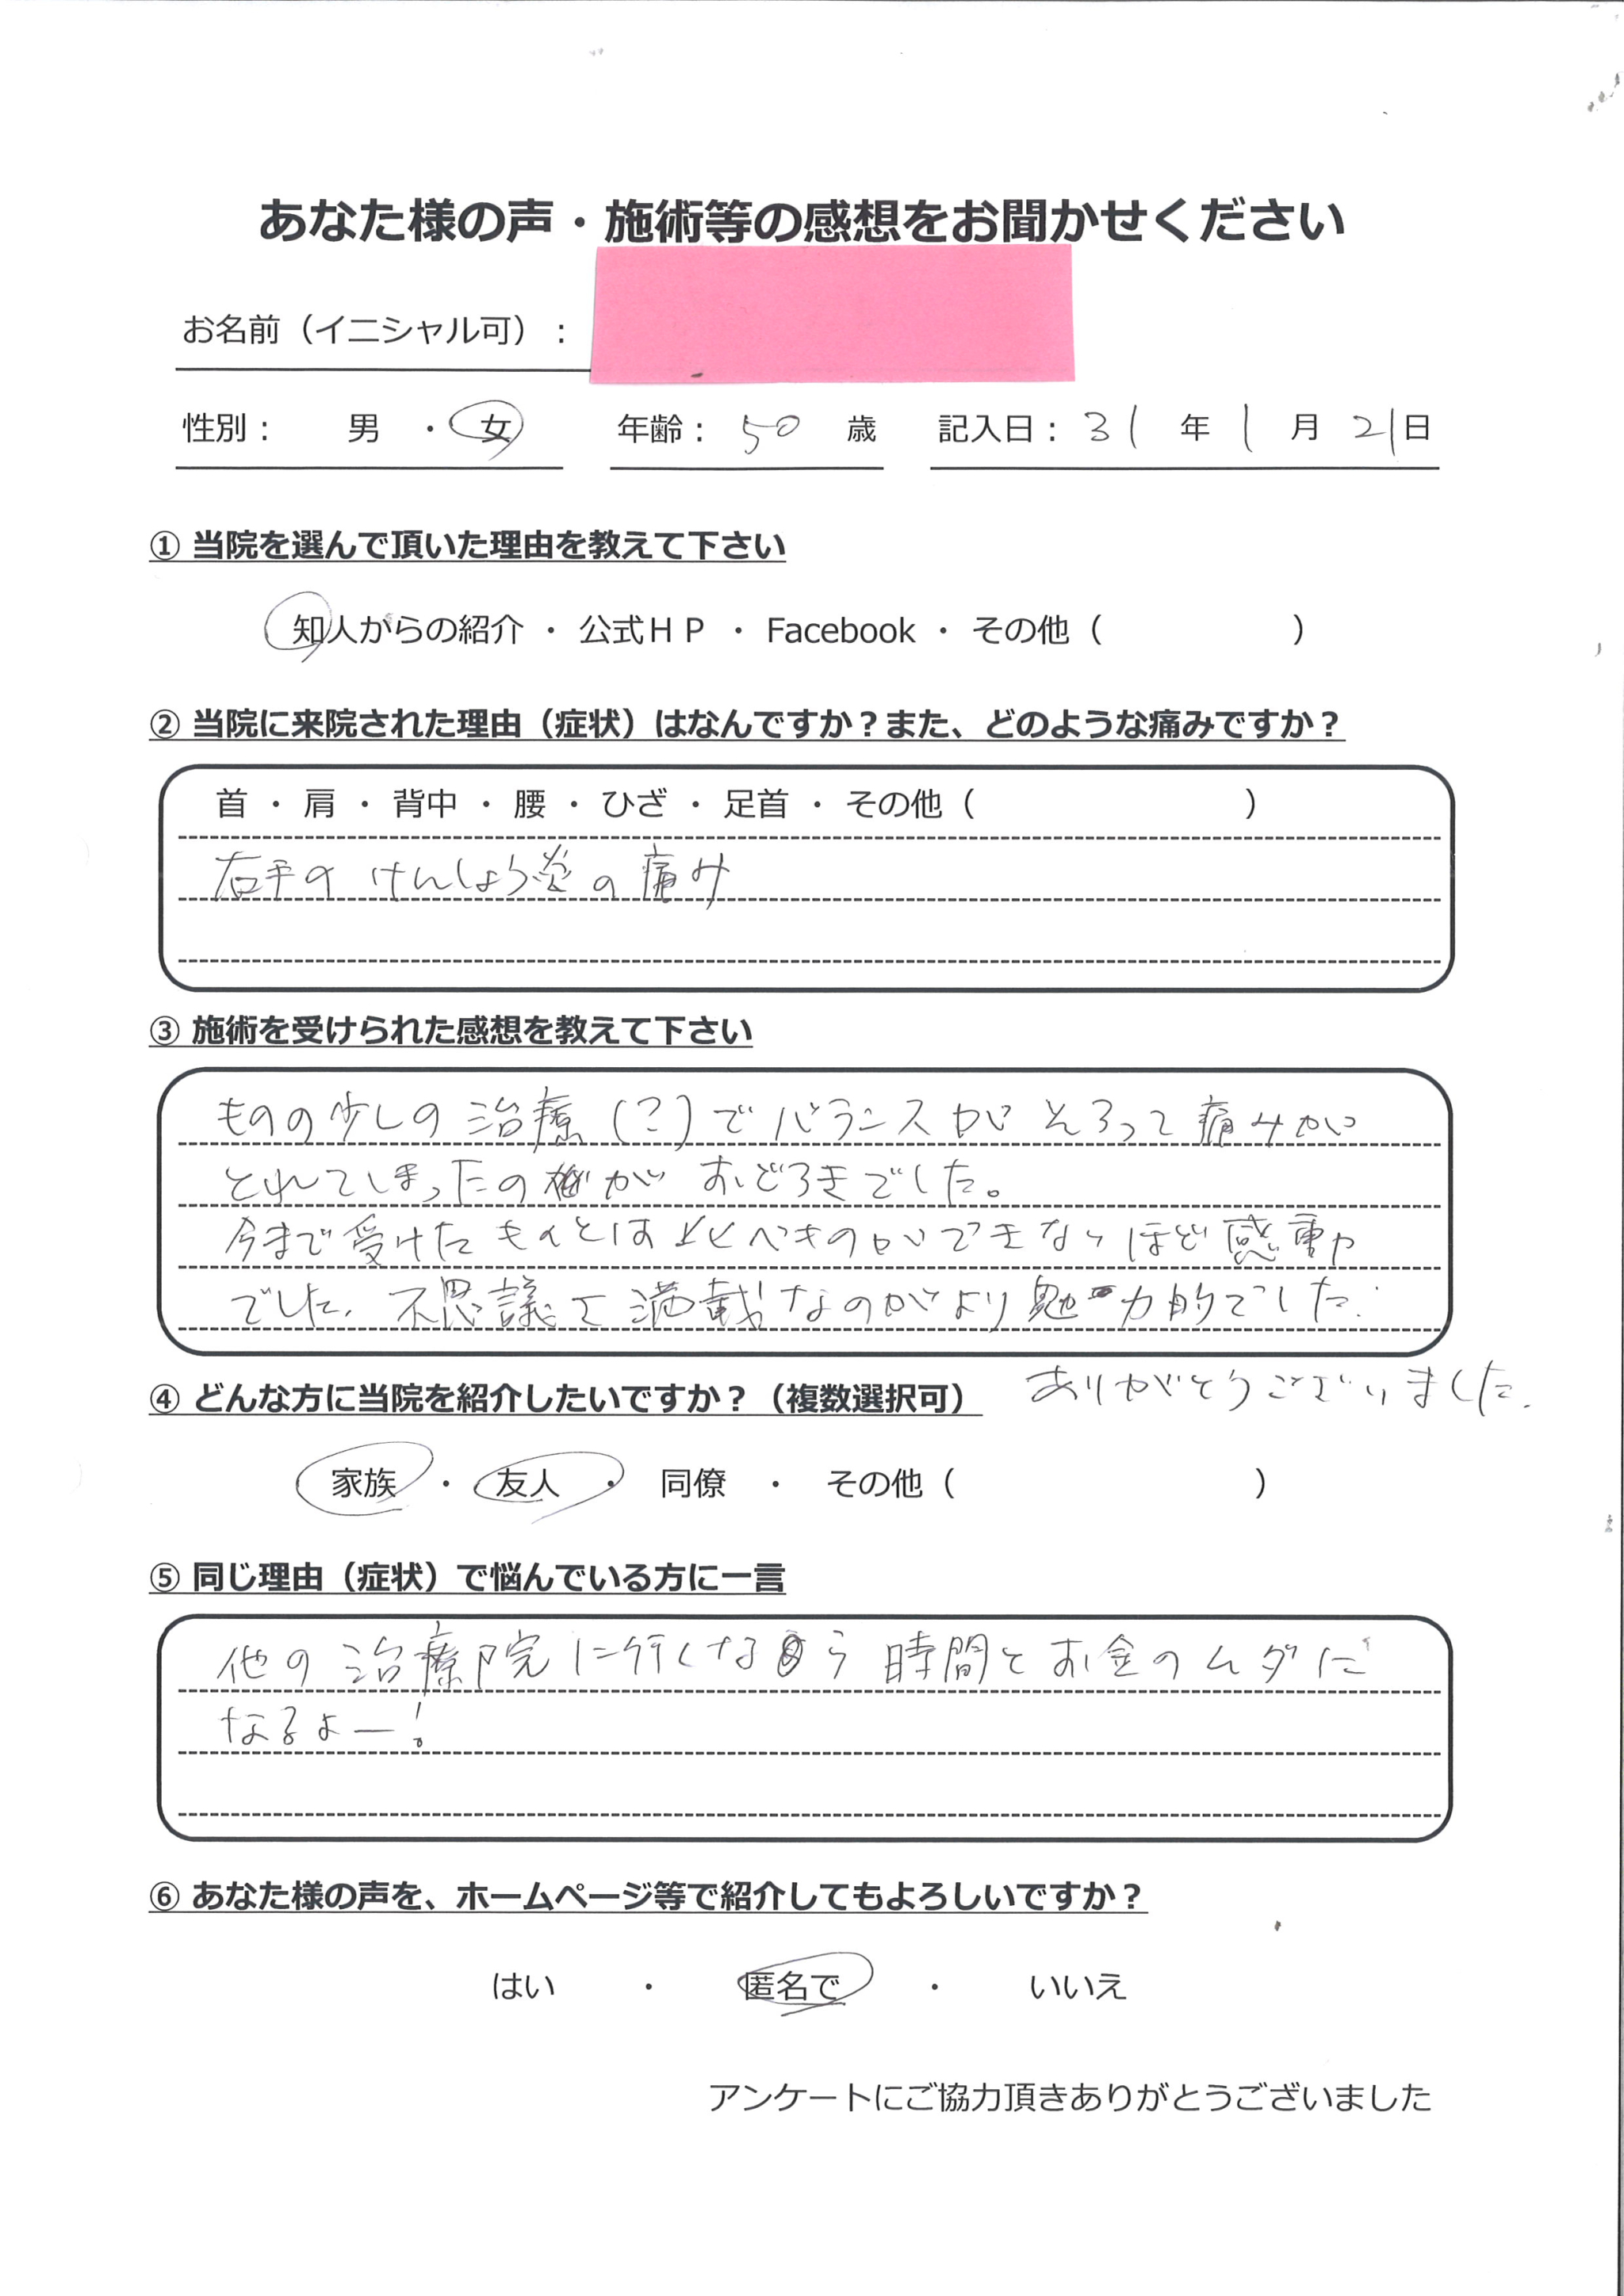 あなた様の声・施術等の感想をお聞かせください
お名前（イニシャル可）：
性別： 男 ・ 女 年齢： 50 歳 記入日： 31 年 1 月 21 日
① 当院を選んで頂いた理由を教えて下さい
知人からの紹介 ・ 公式ＨＰ ・ Facebook ・ その他（ ）
② 当院に来院された理由（症状）はなんですか？また、どのような痛みですか？
首 ・ 肩 ・ 背中 ・ 腰 ・ ひざ ・ 足首 ・ その他（ ）
右手の けんしょう炎の痛み
③ 施術を受けられた感想を教えて下さい
ものの少しの治療（？）でバランスが そろって痛みが
とれてしまったのが おどろきでした。
今まで受けた ものとは比べものができないほど感動
でした。不思議で満載なのがより魅力的でした。
ありがとうございました。
④ どんな方に当院を紹介したいですか？（複数選択可）
家族 ・ 友人 ・ 同僚 ・ その他（ ）
⑤ 同じ理由（症状）で悩んでいる方に一言
他の治療院に行くなら 時間とお金のムダに
なるよー！
⑥ あなた様の声を、ホームページ等で紹介してもよろしいですか？
はい ・ 匿名で ・ いいえ
アンケートにご協力頂きありがとうございました